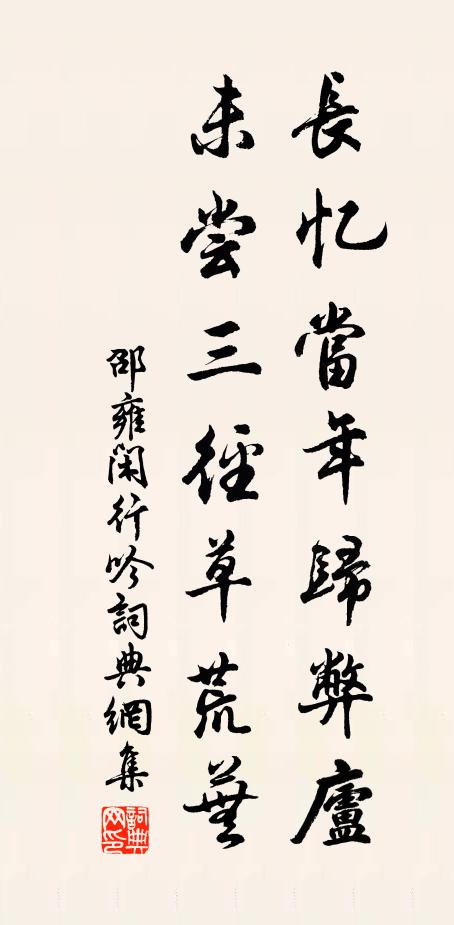 長忆當年歸弊廬
未尝三徑草荒蕪
邵雍閑行吟詞典網集
詞典网印